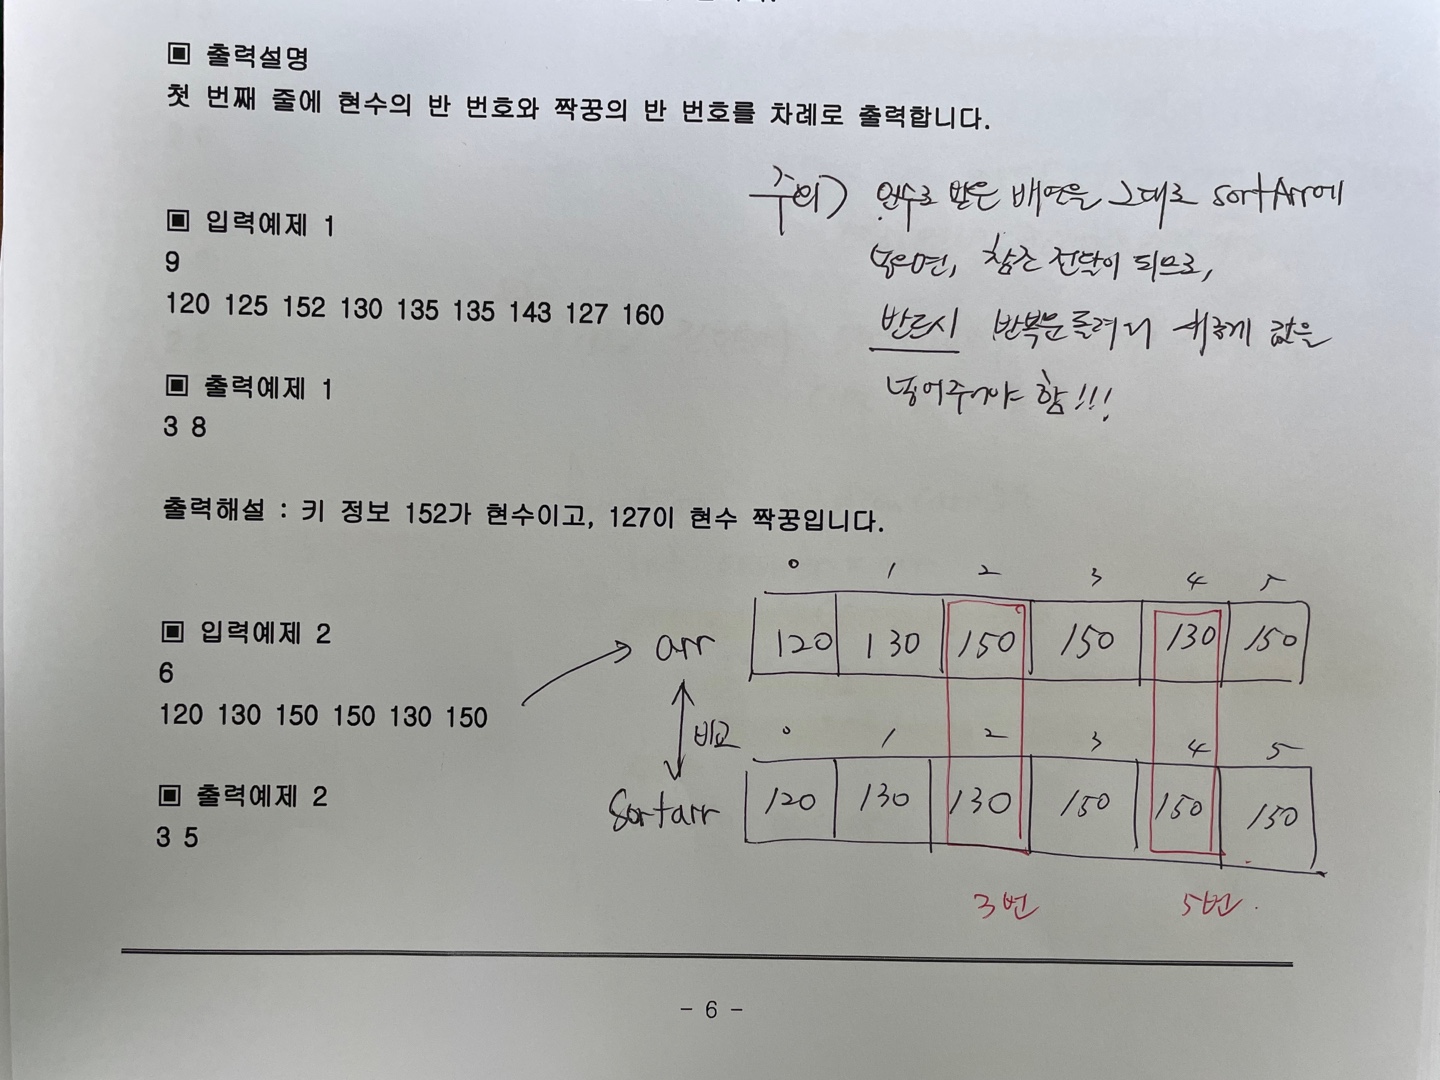 ▣ 출력설명
첫 번째 줄에 현수의 반 번호와 짝꿍의 반 번호를 차례로 출력합니다.
주의) 인수로 받은 배열을 그대로 sortArr에
넣으면, 참조 전달이 되므로,
반드시 반복문 돌려서 새롭게 값을
넣어주어야 함!!!
▣ 입력예제 1
9
120 125 152 130 135 135 143 127 160
▣ 출력예제 1
3 8
출력해설 : 키 정보 152가 현수이고, 127이 현수 짝꿍입니다.
▣ 입력예제 2
6
120 130 150 150 130 150
▣ 출력예제 2
3 5
0 1 2 3 4 5
arr 120 130 150 150 130 150
비교
0 1 2 3 4 5
Sortarr 120 130 130 150 150 150
3번 5번.
- 6 -